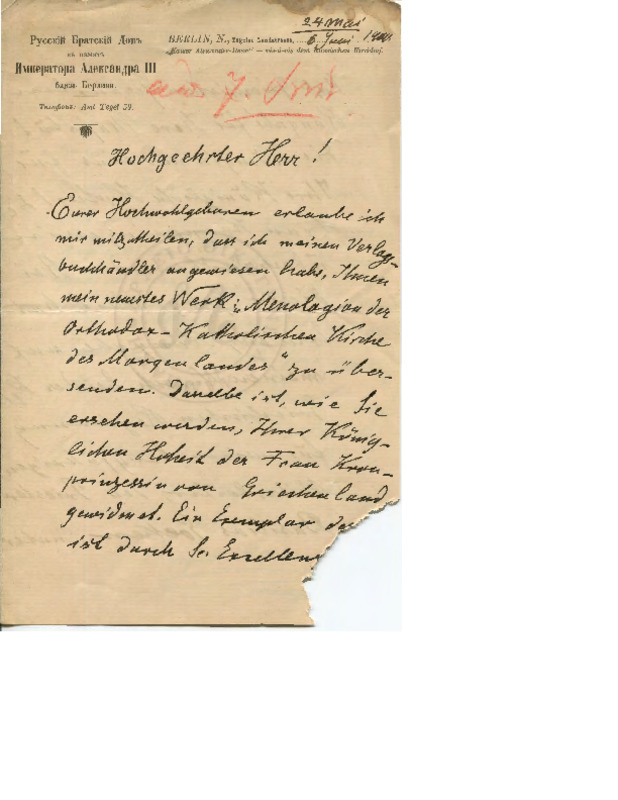 24 Mai
Русскій Братскій Домъ
въ память
Императора Александра III
близъ Берлина.
Телефонъ: Amt Tegel 59.
BERLIN, N., Tegeler Landstrasse, 6 Juni
„Kaiser Alexander-Heim“ — vis-à-vis dem Russischen Kirchhof.
Hochgeehrter Herr!
Eurer Hochwohlgeboren erlaube ich
mir mitzutheilen, dass ich meinen Verlags-
buchhändler angewiesen habe, Ihnen
mein neuestes Werk: „Menologion der
Orthodox-Katholischen Kirche
des Morgenlandes“ zu über-
senden. Dasselbe ist, wie Sie
ersehen werden, Ihrer König-
lichen Hoheit der Frau Kron-
prinzessin von Griechenland
gewidmet. Ein Exemplar
ist durch Se. Excellenz